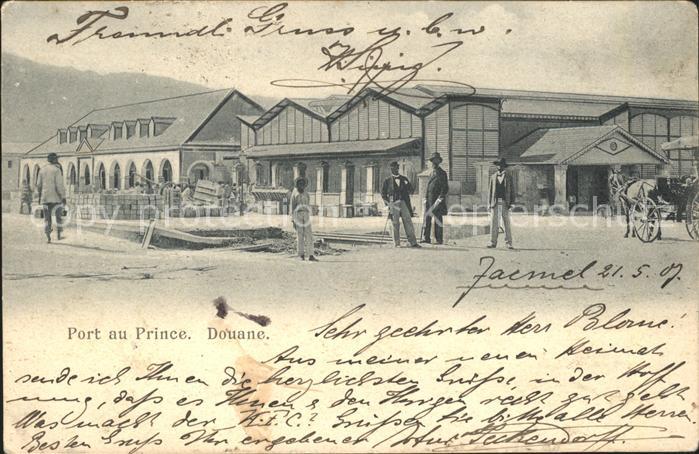 Freundl. Gruss u. s. w.
Jacmel 21.5.07.
Port au Prince. Douane.
Sehr geehrter Herr Blome!
Aus meiner neuen Heimat
sende ich Ihnen die herzlichsten Grüße, in der Hoff
nung, daß es Ihnen & den Ihrigen recht gut geht
Was macht der K.F.C.? Grüßen Sie bitte alle Herren
Besten Gruß Ihr ergebener Seckendorff.
Copyright protection
Kopierschutz